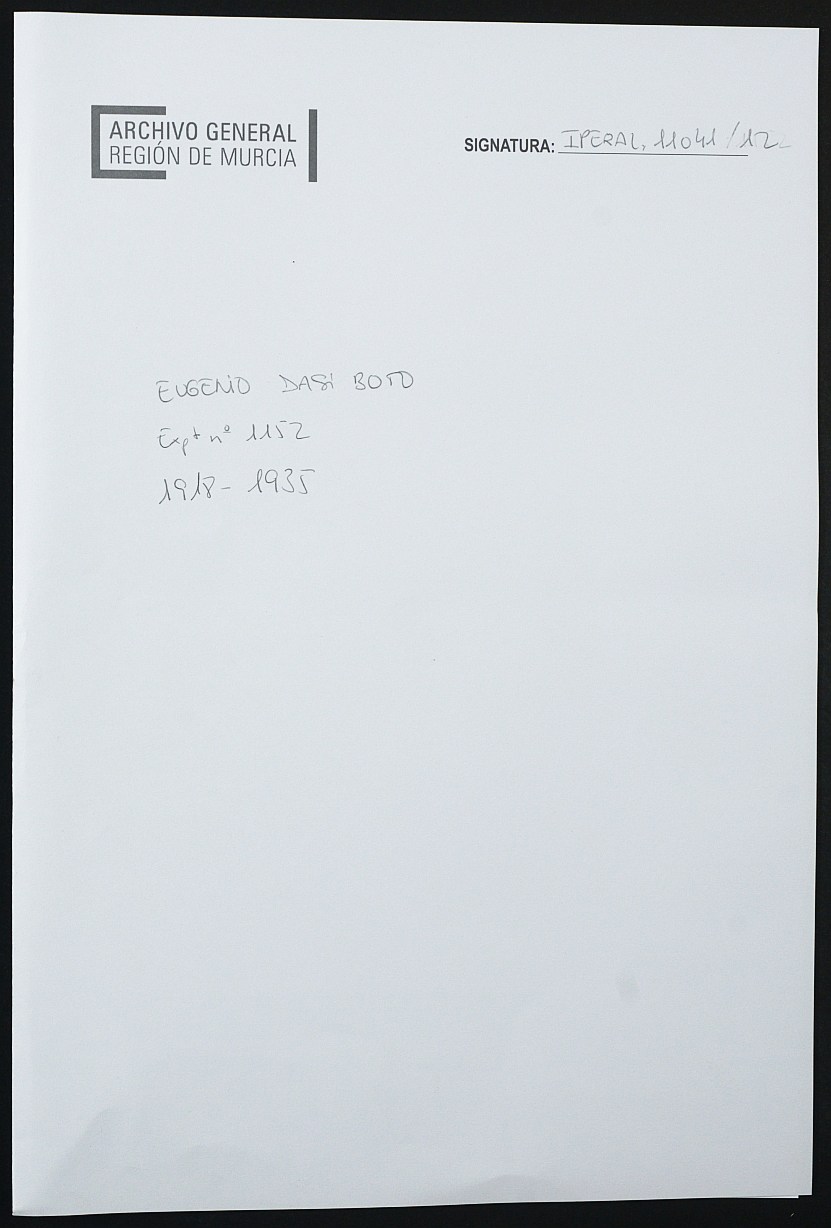 ARCHIVO GENERAL
REGIÓN DE MURCIA
SIGNATURA: IPERAL, 11041/12
EUGENIO DASÍ BOTO
Expt nº 1152
1918 - 1935